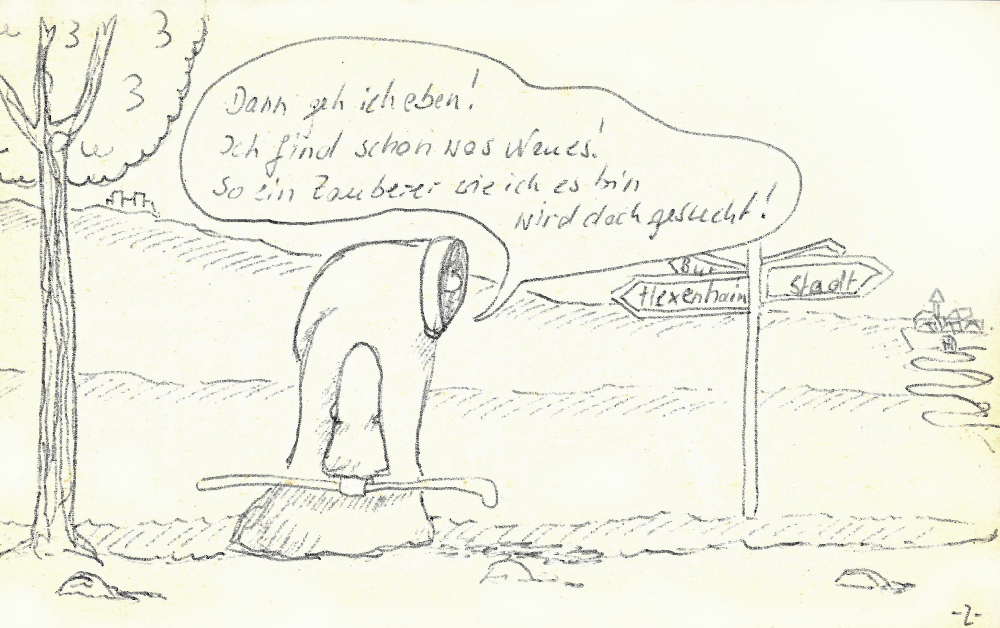 Dann geh ich eben!
Ich find schon was Neues!
So ein Zauberer wie ich es bin
wird doch gesucht!
Bur
Hexenhain
Stadt
-2-